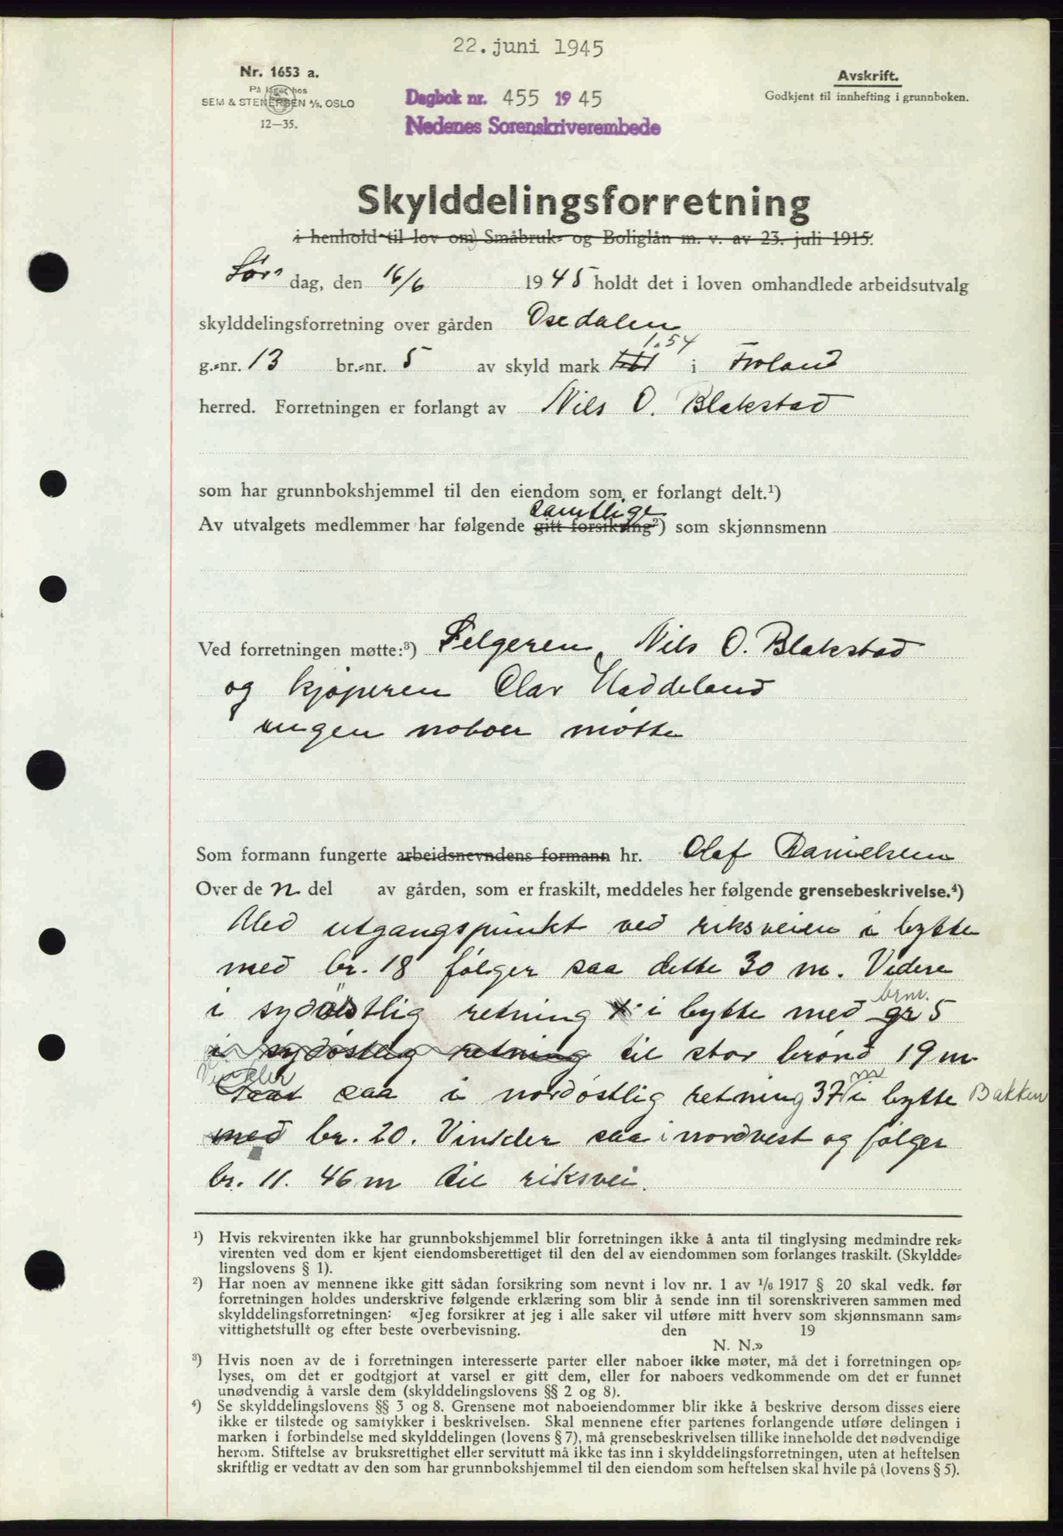 22. juni 1945
Nr. 1653 a.
På lager hos
SEM & STENERSEN A/S, OSLO
12—35.
Avskrift.
Godkjent til innhefting i grunnboken.
Dagbok nr. 455 1945
Nedenes Sorenskriverembede
Skylddelingsforretning
i henhold til lov om) Småbruk- og Boliglån m. v. av 23. juli 1915.
Lør dag, den 16/6 1945 holdt det i loven omhandlede arbeidsutvalg
skylddelingsforretning over gården Osedalen
1.54
g.-nr. 13 br.-nr. 5 av skyld mark i Froland
herred. Forretningen er forlangt av Nils O. Blakstad
som har grunnbokshjemmel til den eiendom som er forlangt delt.¹)
samtlige
Av utvalgets medlemmer har følgende gitt forsikring²) som skjønnsmenn
Ved forretningen møtte:³) Selgeren, Nils O. Blakstad
og kjøperen Olav Haddeland
ingen naboer møtte
Som formann fungerte arbeidsnevndens formann hr. Olaf Danielsen
Over de n del av gården, som er fraskilt, meddeles her følgende grensebeskrivelse.⁴)
Med utgangspunkt ved riksveien i bytte
med br. 18 følger saa dette 30 m. Videre
i sydøstlig retning i bytte med gr 5
brnr.
i sydøstlig retning til stor brønd 19 m
Vinkler
saa i nordøstlig retning 37 m i bytte Bakken
med br. 20. Vinkler saa i nordvest og følger
br. 11. 46 m til riksvei.
¹) Hvis rekvirenten ikke har grunnbokshjemmel blir forretningen ikke å anta til tinglysing medmindre rek-
virenten ved dom er kjent eiendomsberettiget til den del av eiendommen som forlanges fraskilt. (Skyldde-
lingslovens § 1).
²) Har noen av mennene ikke gitt sådan forsikring som nevnt i lov nr. 1 av 1/6 1917 § 20 skal vedk. før
forretningen holdes underskrive følgende erklæring som blir å sende inn til sorenskriveren sammen med
skylddelingsforretningen: «Jeg forsikrer at jeg i alle saker vil utføre mitt hverv som skjønnsmann sam-
vittighetsfullt og efter beste overbevisning. den 19
N. N.»
³) Hvis noen av de i forretningen interesserte parter eller naboer ikke møter, må det i forretningen op-
lyses, om det er godtgjort at varsel er gitt dem, eller for naboers vedkommende om det er funnet
unødvendig å varsle dem (skylddelingslovens §§ 2 og 8).
⁴) Se skylddelingslovens §§ 3 og 8. Grensene mot naboeiendommer blir ikke å beskrive dersom disses eiere
ikke er tilstede og samtykker i beskrivelsen. Skal mennene efter partenes forlangende utføre delingen i
marken i forbindelse med skylddelingen (lovens § 7), må grensebeskrivelsen tillike inneholde det nødvendige
herom. Stiftelse av bruksrettighet eller servitutt må ikke tas inn i skylddelingsforretningen, uten at heftelsen
skriftlig er vedtatt av den som har grunnbokshjemmel til den eiendom som heftelsen skal hvile på (lovens § 5).